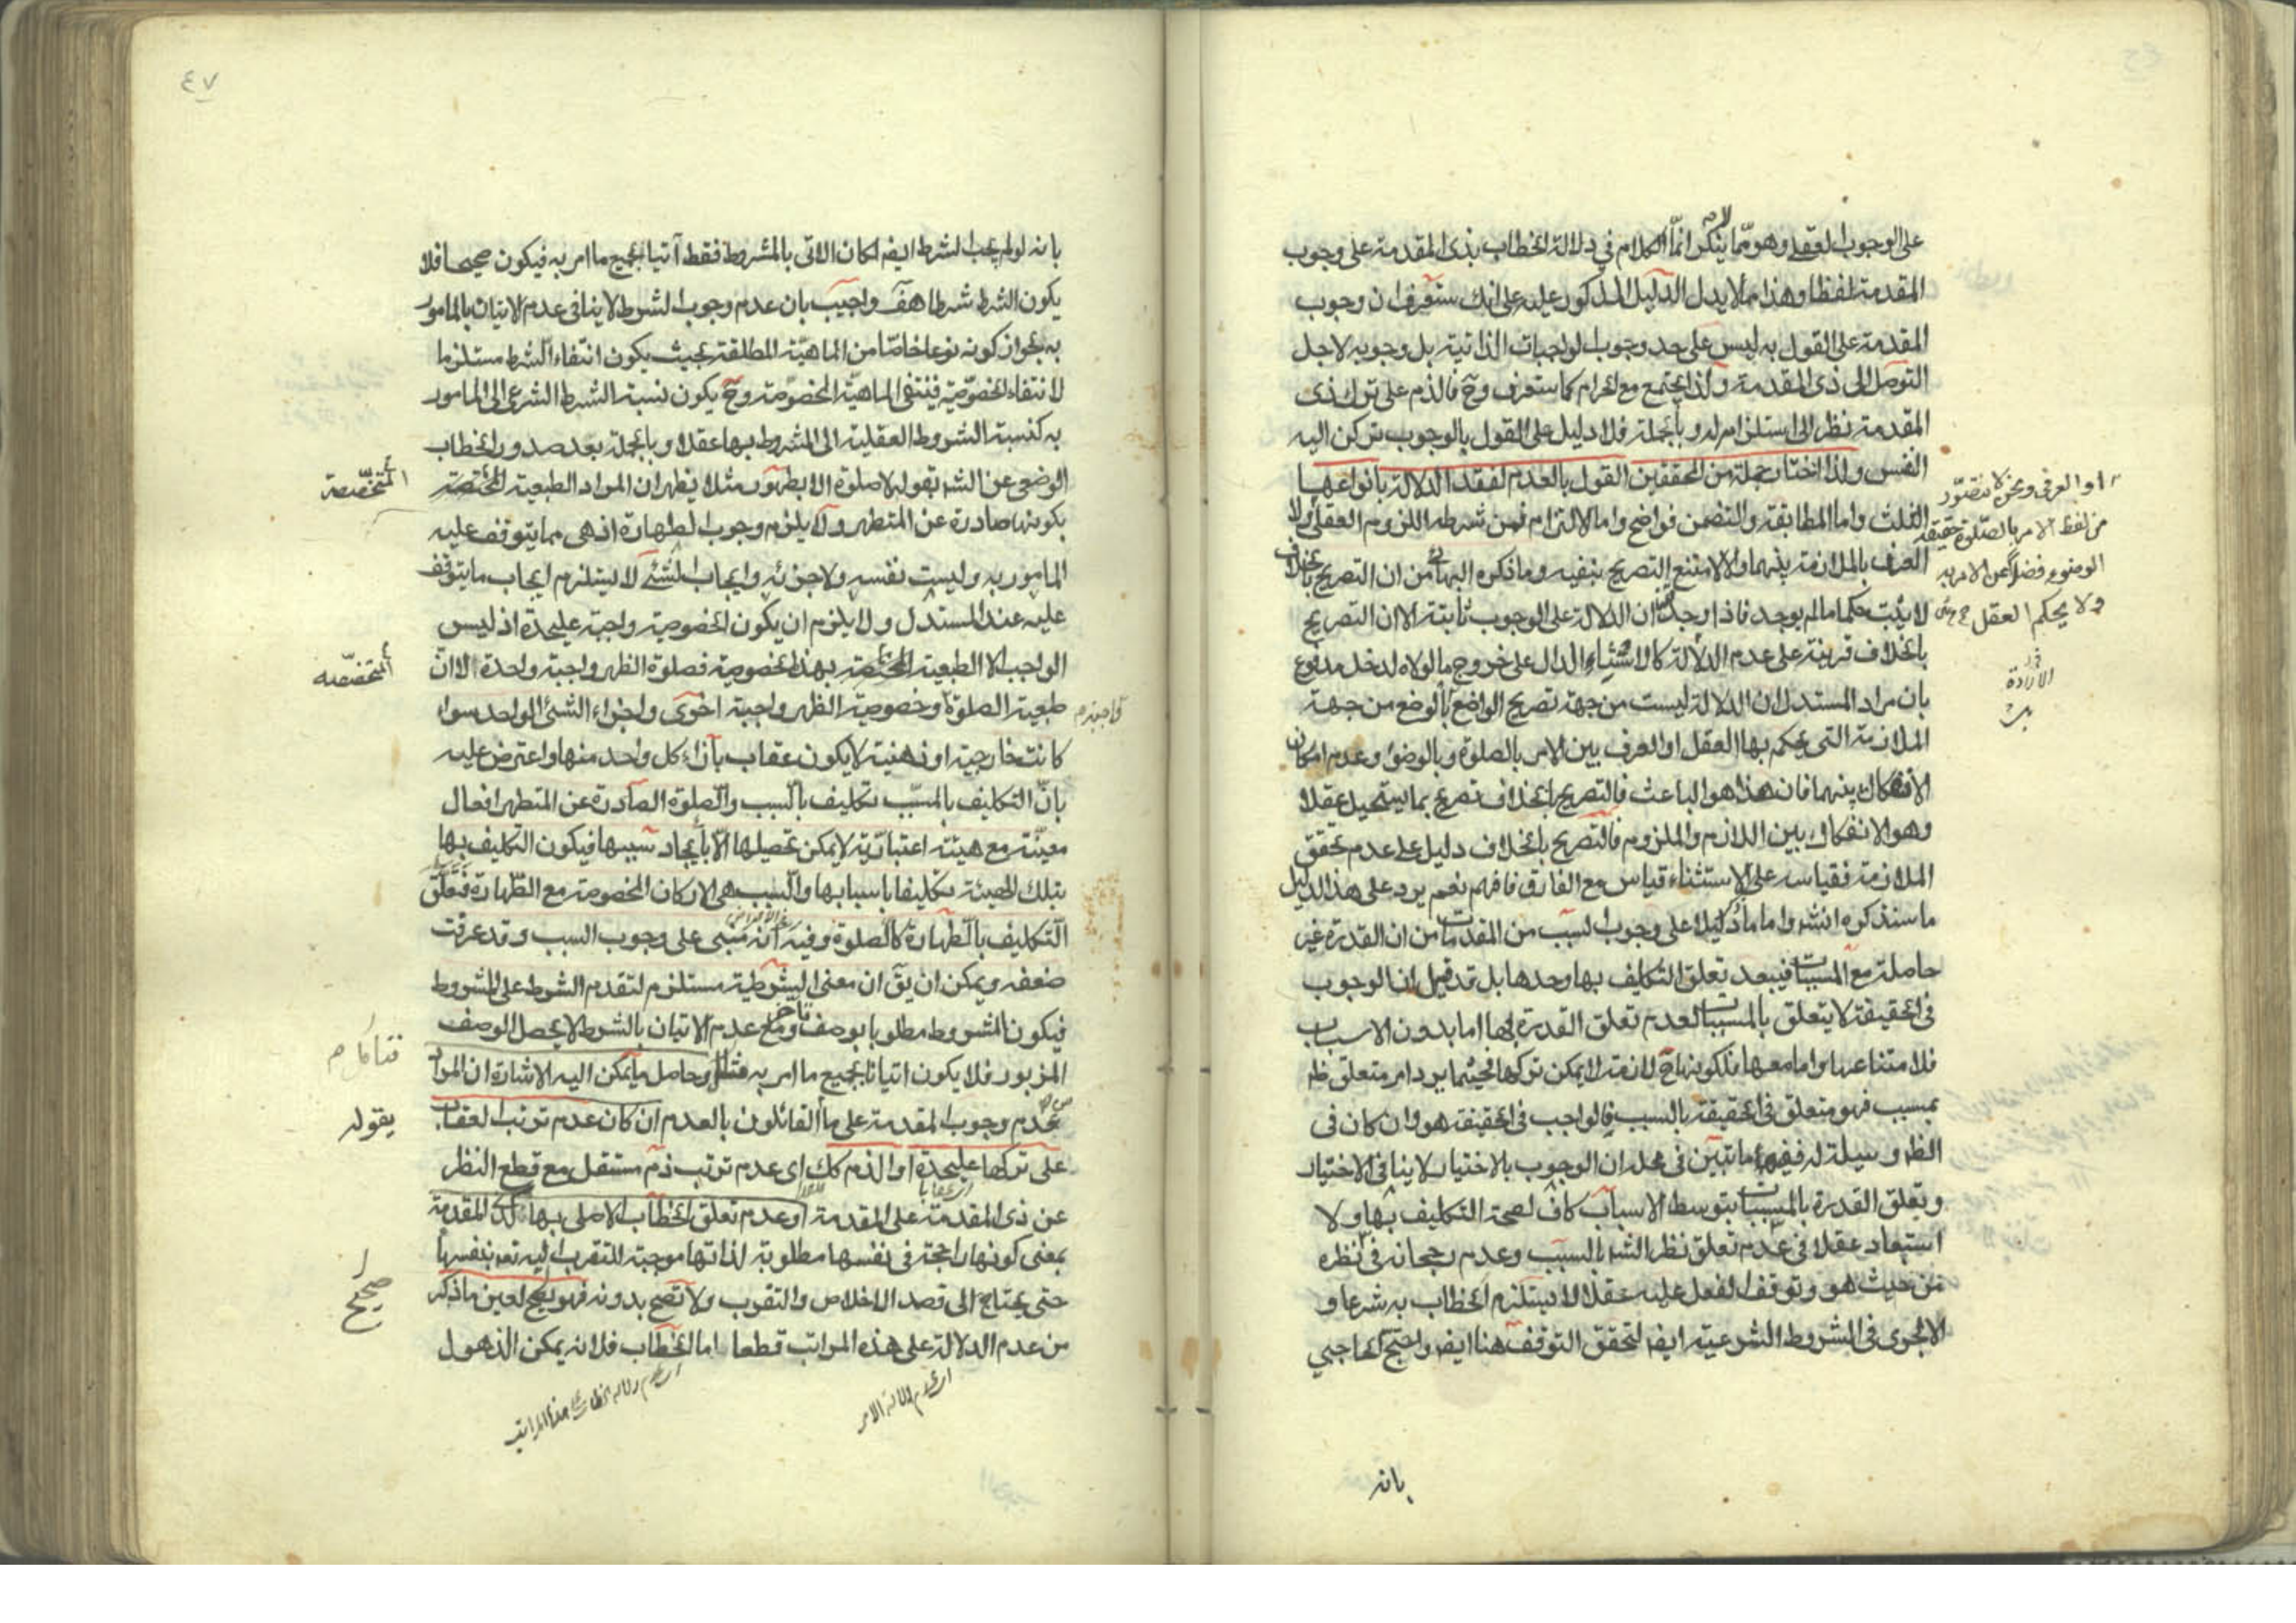 على الوجوب العقلي وهو مما ينكر انما الكلام في دلالة الخطاب بذى المقدمة على وجوب
المقدمة لفظا وهذا مما لا يدل الدليل المذكور عليه على انك ستعرف ان وجوب
المقدمة على القول به ليس على حد وجوب الواجبات الذاتية بل وجوبه لاجل
التوصل الى ذى المقدمة ولذا يجتمع مع الحرام كما ستعرف وح فالذم على ترك ذى
المقدمة نظر الى استلزامه له وبالجملة فلا دليل على القول بالوجوب تركن اليه
النفس ولذا اختار جملة من المحققين القول بالعدم لفقد الدلالة بانواعها
الثلث واما المطابقة والتضمن فواضح واما الالتزام فمن شرطه اللزوم العقلى ولا
العرف بالملازمة بينهما والا لامتنع التصريح بنفيه وما ذكره البهائى من ان التصريح بخلاف
لا يثبت حكما ما لم يوجد فاذا وجد ان الدلالة على الوجوب ثابتة الا ان التصريح
بالخلاف قرينة على عدم الدلالة كالاستثناء الدال على خروج ما لولاه لدخل مدفوع
بان مراد المستدل ان الدلالة ليست من جهة تصريح الواضع بالوضع من جهة
الملازمة التى يحكم بها العقل او العرف بين الامر بالصلوة وبالوضوء وعدم امكان
الانفكاك بينهما فان هذا هو الباعث فالتصريح بالخلاف تصريح بما يستحيل عقلا
وهو الانفكاك بين اللازم والملزوم فالتصريح بالخلاف دليل على عدم تحقق
الملازمة فقياسه على الاستثناء قياس مع الفارق فافهم نعم يرد على هذا الدليل
ما سنذكره انشه واما ما ذكر دليلا على وجوب السبب من المقدمات من ان القدرة غير
حاصلة مع المسببات فيبعد تعلق التكليف بها وحدها بل قد قيل ان الوجوب
فى الحقيقة لا يتعلق بالمسببات لعدم تعلق القدرة بها اما بدون الاسباب
فلامتناعها واما معها فلكونها ح لازمة لا يمكن تركها فحيثما يرد امر متعلق ظه
بمسبب فهو متعلق فى الحقيقة بالسبب فالواجب فى الحقيقة هو وان كان فى
الظه وسيلة له ففيه ما تبين فى محله ان الوجوب بالاختيار لا ينافى الاختيار
وتعلق القدرة بالمسببات بتوسط الاسباب كاف لصحة التكليف بها ولا
استبعاد عقلا فى عدم تعلق نظر الشه بالسبب وعدم رجحانه فى نظره
من حيث هو وتوقف الفعل عليه عقلا لا يستلزم الخطاب به شرعا و
الاجرى فى الشروط الشرعية ايضه لتحقق التوقف هنا ايضه واحتج الحاجبي
او العرفى ونحن لا نتصور
من لفظ الامر بالصلوة حقيقة
الوضوء فضلا عن الامر به
ولا يحكم العقل
الارادة
بانه
٤٧
بانه لو لم يجب الشرط ايضه لكان الاتى بالمشروط فقط آتيا بجميع ما امر به فيكون صحيحا فلا
يكون الشرط شرطا هف واجيب بان عدم وجوب الشرط لا ينافى عدم الاتيان بالمامور
به بجواز كونه نوعا خاصا من الماهية المطلقة بحيث يكون انتفاء الشرط مستلزما
لانتفاء الخصوصية فينتفى الماهية المخصوصة وح يكون نسبة الشرط الشرعى الى المامور
به كنسبة الشروط العقلية الى المشروط بها عقلا وبالجملة بعد صدور الخطاب
الوضعى عن الشه بقوله لا صلوة الا بطهور مثلا يظهر ان المراد الطبيعة المختصة
المتخصصة
بكونها صادرة عن المتطهر ولا يلزم وجوب الطهارة اذ هى مما يتوقف عليه
المامور به وليست نفسه ولا جزئه وايجاب الشئ لا يستلزم ايجاب ما يتوقف
عليه عند المستدل ولا يلزم ان يكون الخصوصية واجبة عليحدة اذ ليس
الواجب الا الطبيعة المختصة بهذا الخصوصية فصلوة الظهر واجبة واحدة الا ان
المتخصصه
طبيعة الصلوة وخصوصية الظهر واجبة اخرى واجزاء الشئ الواحد سواء
كانت خارجية او ذهنية لا يكون عقاب بازاء كل واحد منها واعترض عليه
بان التكليف بالمسبب تكليف بالسبب والصلوة الصادرة عن المتطهر افعال
معينة مع هيئة اعتبارية لا يمكن تحصيلها الا بايجاد سببها فيكون التكليف بها
بتلك الهيئة تكليفا باسبابها والسبب هى الاركان المخصوصة مع الطهارة فتعلق
التكليف بالطهارة كالصلوة وفيه انه مبنى على وجوب السبب وقد عرفت
ضعفه ويمكن ان يق ان معنى الشرطية مستلزم لتقدم الشرط على المشروط
فيكون المشروط مطلوبا بوصف ومع عدم الاتيان بالشرط لا يحصل الوصف
المزبور فلا يكون اتيانا بجميع ما امر به فتأمل وحاصل ما يمكن اليه الاشارة ان المراد
بعدم وجوب المقدمة على ما القائلون بالعدم ان كان عدم ترتب العقاب
يقوله
على تركها عليحدة او الذم كك اى عدم ترتب ذم مستقل مع قطع النظر
عن ذى المقدمة على المقدمة او عدم تعلق الخطاب الاصلى بها لذلك المقدمة
بمعنى كونها راجحة فى نفسها مطلوبة لذاتها موجبة للتقرب اليه تعه بنفسها
حتى يحتاج الى قصد الاخلاص والتقرب ولا تصح بدونه فهو صحيح لعين ما ذكر
صحيح
من عدم الدلالة على هذه المراتب قطعا اما الخطاب فلانه يمكن الذهول
اى عدم دلالة الامر
اى عدم دلالة الخطاب على هذا المراتب